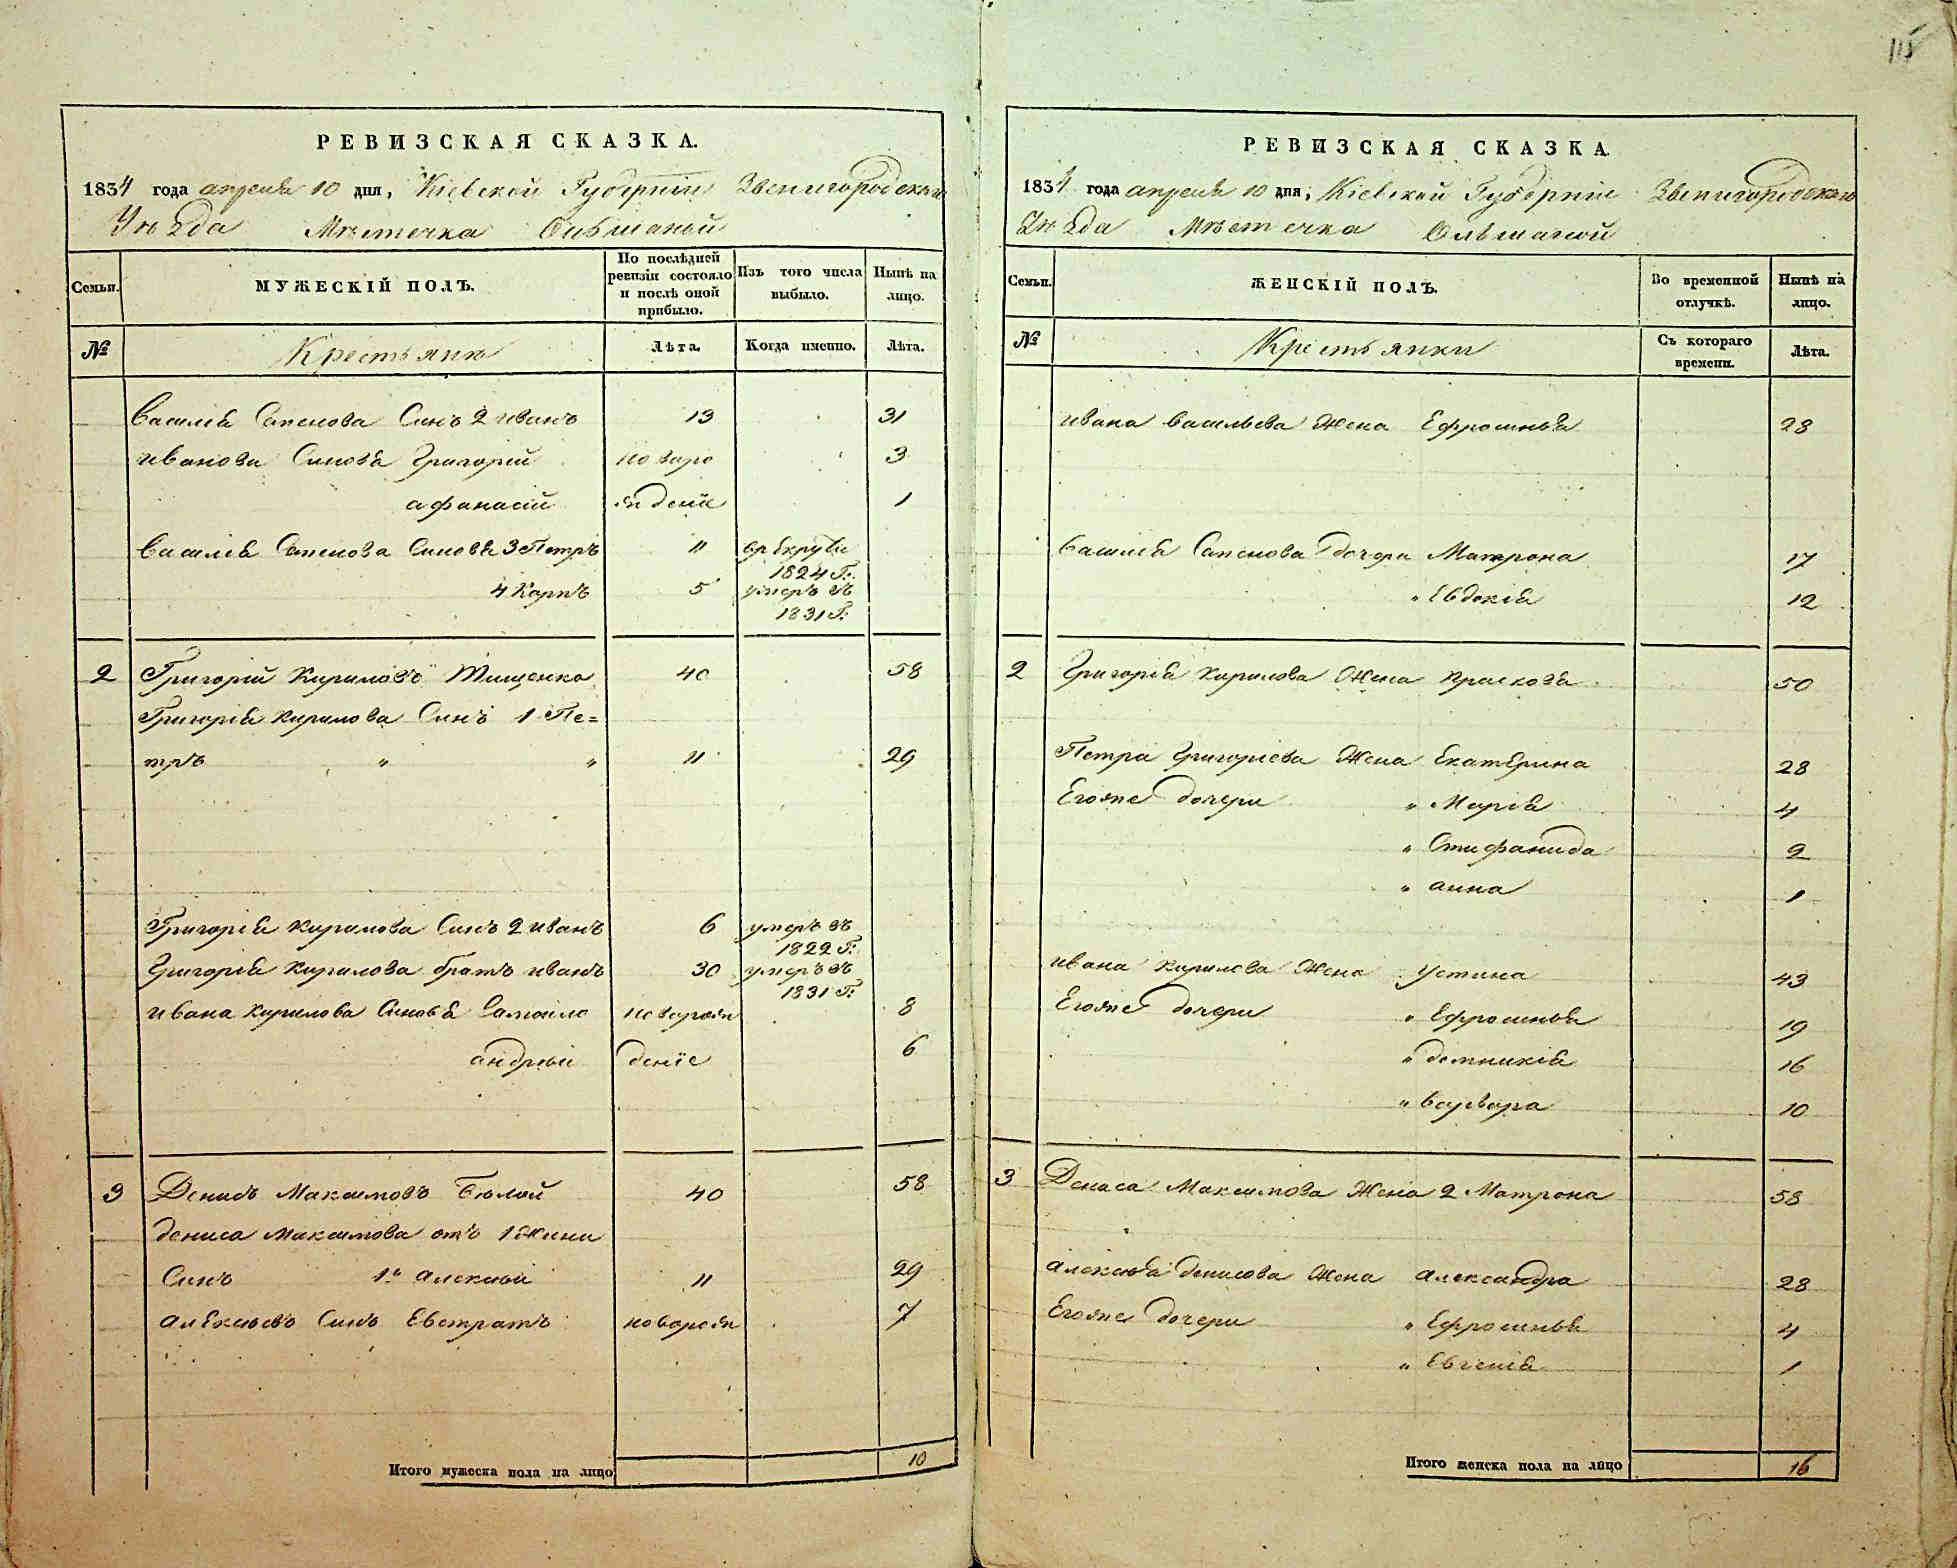 115
РЕВИЗСКАЯ СКАЗКА.
1834 года апреля 10 дня, Кіевской Губерніи Звенигородскаго
Уѣзда Мѣстечка Ольшаной
Семьи.
МУЖЕСКІЙ ПОЛЪ.
По послѣдней ревизіи состояло и послѣ оной прибыло.
Изъ того числа выбыло.
Нынѣ на лицо.
№ Крестьяне Лѣта. Когда именно. Лѣта.
Василія Сапенова Синъ 2 иванъ 13 31
иванови Синовя Григорій новоро 3
афанасій жденіе 1
Василія Сапенова Синовя 3 Петръ 11 врекруты
1824 Г:
4 Карпъ 5 умеръ въ
1831 Г:
2 Григорій Кириловъ Тищенко 40 58
Григорія Кирилова Синъ 1 Пе=
тръ " " 11 29
Григорія Кирилова Синъ 2 иванъ 6 умеръ въ
1822 Г:
Григорія Кирилова братъ иванъ 30 умеръ въ
1831 Г:
ивана Кирилова Синовя Самоило новорож 8
андрей деніе 6
3 Денисъ Максимовъ Белой 40 58
дениса Максимова отъ 1 жени
Синъ 1й алексѣй 11 29
алексѣевъ Синъ Евстратъ новорож 7
Итого мужеска пола на лицо 10
РЕВИЗСКАЯ СКАЗКА.
1834 года апреля 10 дня, Кіевской Губерніи Звенигородскаго
Уѣзда Мѣстечка Ольшаной
Семьи.
ЖЕНСКІЙ ПОЛЪ.
Во временной отлучкѣ.
Нынѣ на лицо.
№ Крестьянки Съ котораго времени. Лѣта.
ивана васильева Жена Ефросинья 28
Василія Сапенова дочери Матрона 17
" Евдокія 12
2 Григорія Кирилова Жена Прасковя 50
Петра Григорієва Жена Екатерина 28
Егоже дочери " Марія 4
" Стифанида 2
" анна 1
ивана Кирилова Жена Устина 43
Егоже дочери " Ефросинья 19
" домникія 16
" варвара 10
3 Дениса Максимова Жена 2 Матрона 58
алексѣя денисова Жена александра 28
Егоже дочери " Ефросинья 4
" Евгенія 1
Итого женска пола на лицо 16